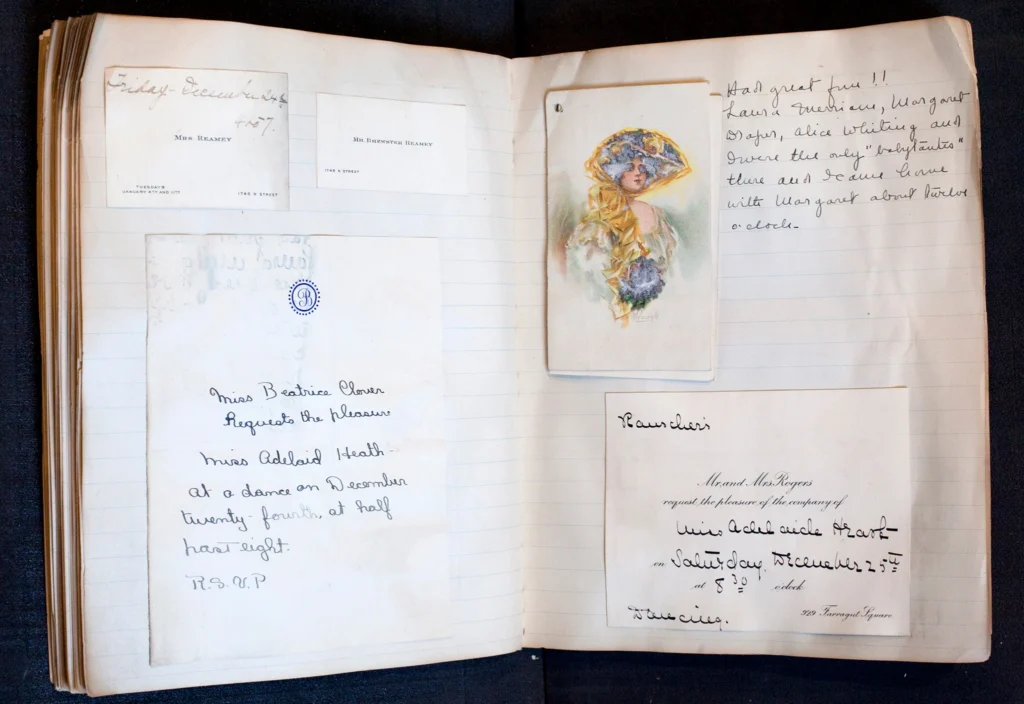 Friday - December 24th
4 to 7.
MRS REAMEY
TUESDAYS
JANUARY 4TH AND 11TH
1742 N STREET
MR BREWSTER REAMEY
1742 N STREET
B
Miss Beatrice Clover
Requests the pleasure
Miss Adelaid Heath
at a dance on December
twenty-fourth, at half
past eight.
R.S.V.P
Had great fun!!
Laura Merriam, Margaret
Draper, Alice Whiting and
I were the only "babytantes"
there and I came home
with Margaret about twelve
o'clock-
Rauscher's
Mr. and Mrs Rogers
request the pleasure of the company of
Miss Adelaide Heath
on Saturday, December 25th
at 8 30 o'clock
Dancing.
Farragut Square